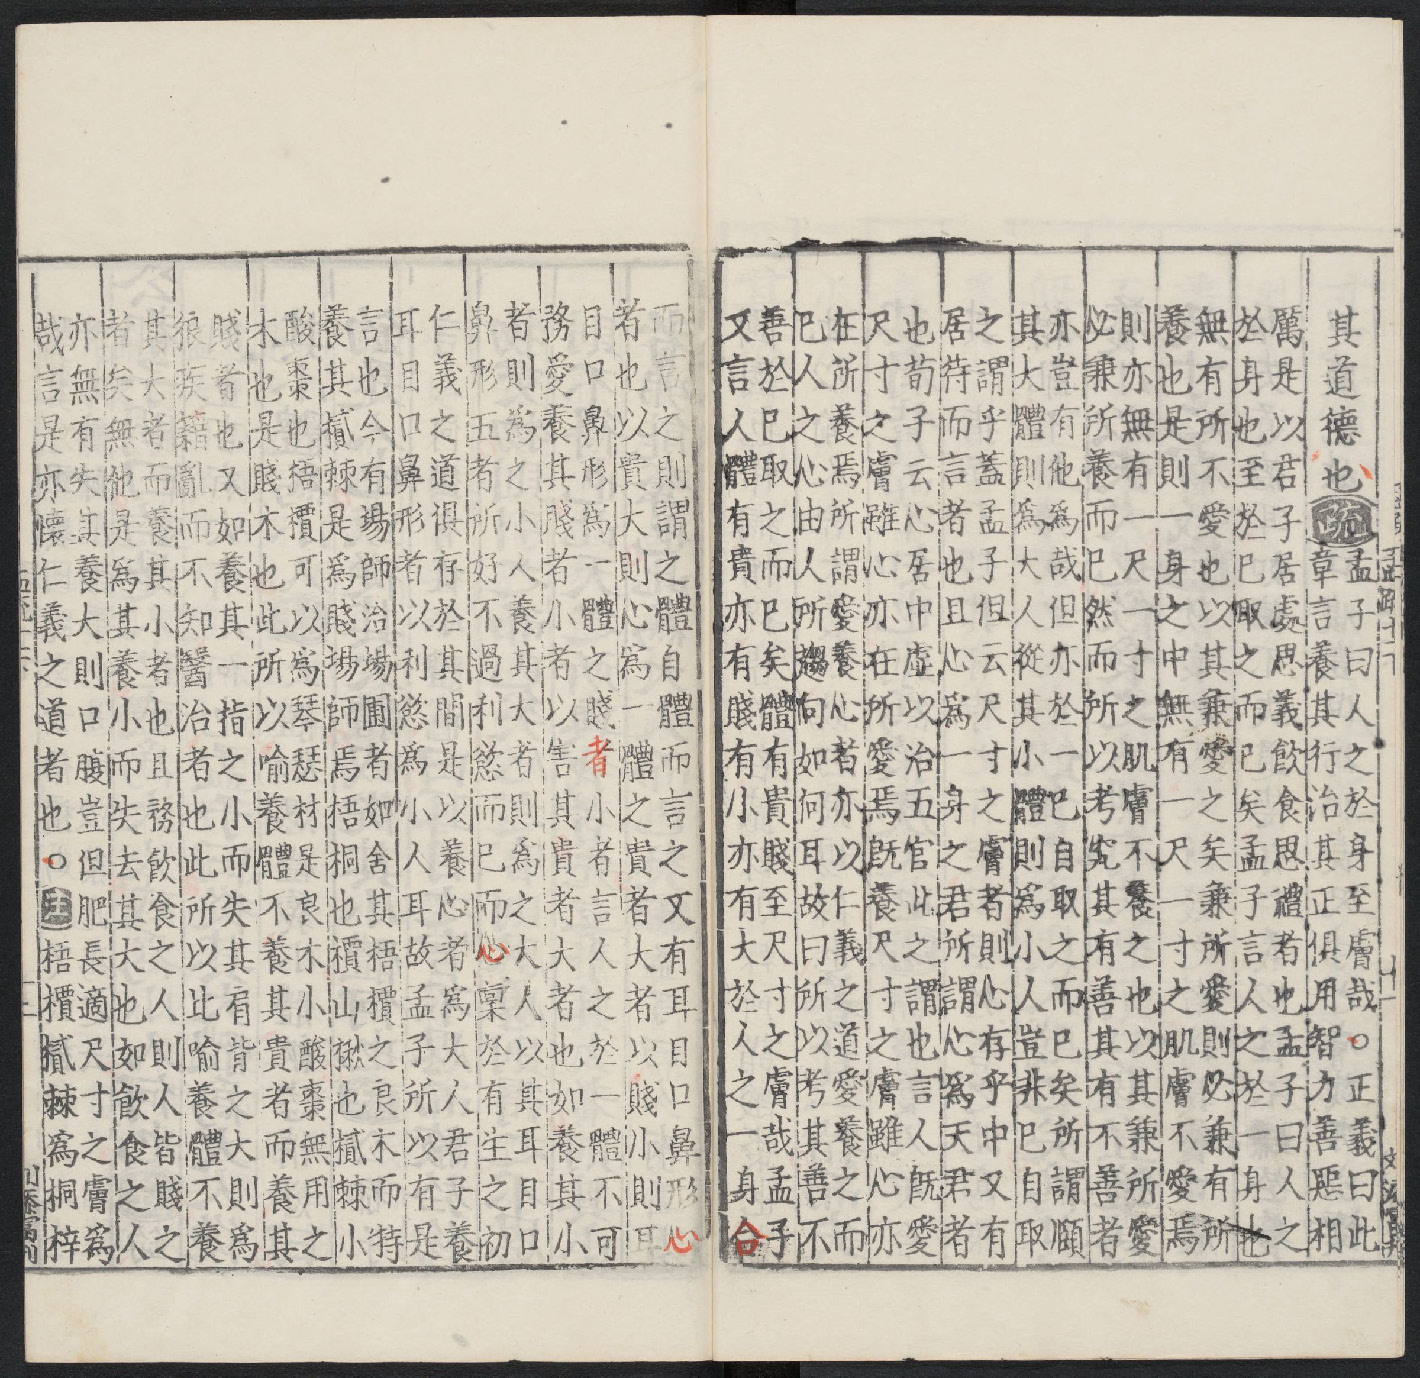 其道德也疏孟子曰人之於身至膚哉○正義曰此
章言養其行治其正俱用智力善惡相
厲是以君子居處思義飲食思禮者也孟子曰人之
於身也至於已取之而已矣孟子言人之於一身也
無有所不愛也以其兼愛之矣兼所愛則必兼有所
養也是則一身之中無有一尺一寸之肌膚不愛焉
則亦無有一尺一寸之肌膚不養之也以其兼所愛
必兼所養而已然而所以考究其有善其有不善者
亦豈有他為哉但亦於一已自取之而已矣所謂頤
其大體則為大人從其小體則為小人豈非已自取
之謂乎蓋孟子但云尺寸之膚者則心存乎中又有
居待而言者也且心為一身之君所謂心為天君者
也荀子云心居中虛以治五官此之謂也言人既愛
尺寸之膚雖心亦在所愛焉既養尺寸之膚雖心亦
在所養焉所謂愛養心者亦以仁義之道愛養之而
已人之心由人所趨向如何耳故曰所以考其善不
善於已取之而已矣體有貴賤至尺寸之膚哉孟子
又言人體有貴亦有賤有小亦有大於人之一身合
而言之則謂之體自體而言之又有耳目口鼻形心
者也以貴大則心為一體之貴者大者以賤小則耳
目口鼻形為一體之賤者小者言人之於一體不可
務愛養其賤者小者以害其貴者大者也如養其小
者則為之小人養其大者則為之大人以其耳目口
鼻形五者所好不過利慾而已而心稟於有生之初
仁義之道俱存於其間是以養心者為大人君子養
耳目口鼻形者以利慾為小人耳故孟子所以有是
言也今有場師治場圃者如舍其梧檟之良木而特
養其樲棘是為賤場師焉梧桐也檟山楸也樲棘小
酸棗也梧檟可以為琴瑟材是良木小酸棗無用之
木也是賤木也此所以喻養體不養其貴者而養其
賤者也又如養其一指之小而失其肩背之大則為
狼疾藉亂而不知醫治者也此所以比喻養體不養
其大者而養其小者也且務飲食之人則人皆賤之
者矣無他是為其養小而失去其大也如飲食之人
亦無有失其養大則口腹豈但肥長適尺寸之膚為
哉言是亦懷仁義之道者也○注梧檟樲棘為桐梓